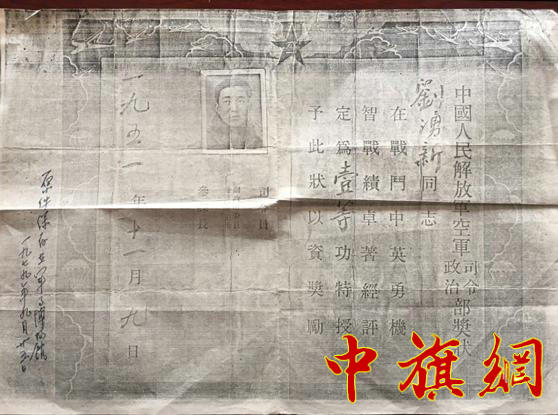 中國人民解放軍空軍司令部政治部獎狀
劉湧新同志
在戰鬥中英勇機
智戰績卓著經評
定為壹等功特授
予此狀以資獎勵
司令員
參謀長
一九五一年十一月九日
一九七九年九月廿五日
中旗網